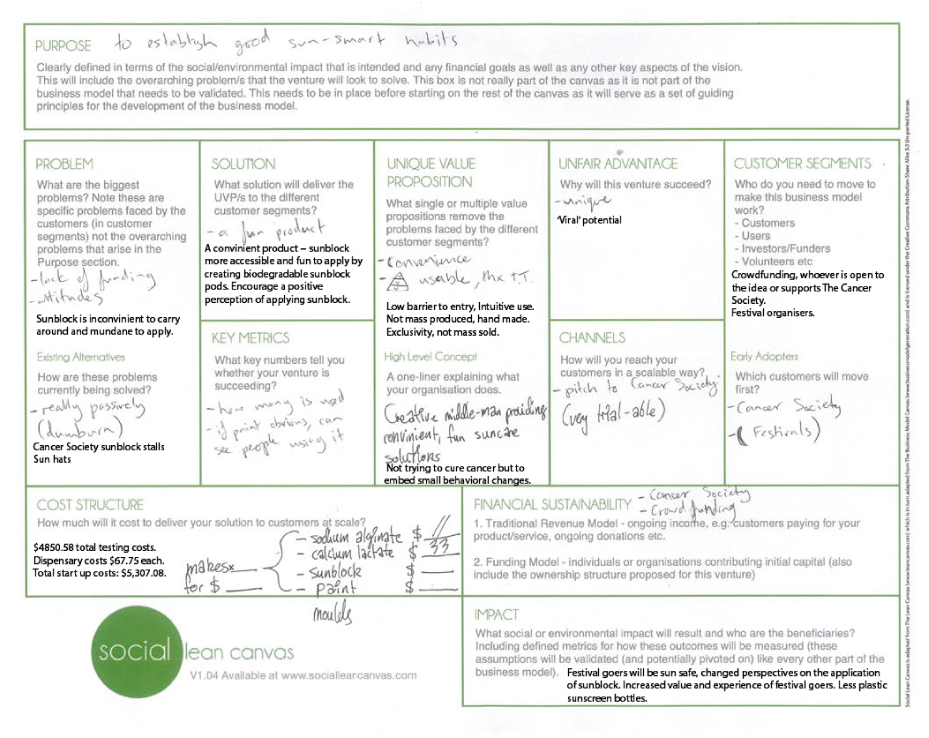 PURPOSE to establish good sun-smart habits
Clearly defined in terms of the social/environmental impact that is intended and any financial goals as well as any other key aspects of the vision.
This will include the overarching problem/s that the venture will look to solve. This box is not really part of the canvas as it is not part of the
business model that needs to be validated. This needs to be in place before starting on the rest of the canvas as it will serve as a set of guiding
principles for the development of the business model.
PROBLEM
What are the biggest
problems? Note these are
specific problems faced by the
customers (in customer
segments) not the overarching
problems that arise in the
Purpose section.
- lack of funding
- attitudes
Sunblock is inconvinient to carry
around and mundane to apply.
Existing Alternatives
How are these problems
currently being solved?
- really passively
(dumburn)
Cancer Society sunblock stalls
Sun hats
SOLUTION
What solution will deliver the
UVP/s to the different
customer segments?
- a fun product
A convinient product – sunblock
more accessible and fun to apply by
creating biodegradable sunblock
pods. Encourage a positive
perception of applying sunblock.
KEY METRICS
What key numbers tell you
whether your venture is
succeeding?
- how many is used
- if paint obvious, can
see people using it
UNIQUE VALUE
PROPOSITION
What single or multiple value
propositions remove the
problems faced by the different
customer segments?
- Convenience
- usable,
Low barrier to entry, Intuitive use.
Not mass produced, hand made.
Exclusivity, not mass sold.
High Level Concept
A one-liner explaining what
your organisation does.
Creative middle-man providing
convinient, fun suncare
solutions
Not trying to cure cancer but to
embed small behavioral changes.
UNFAIR ADVANTAGE
Why will this venture succeed?
- unique
'Viral' potential
CHANNELS
How will you reach your
customers in a scalable way?
- pitch to Cancer Society
(very trial-able)
CUSTOMER SEGMENTS
Who do you need to move to
make this business model
work?
- Customers
- Users
- Investors/Funders
- Volunteers etc
Crowdfunding, whoever is open to
the idea or supports The Cancer
Society.
Festival organisers.
Early Adopters
Which customers will move
first?
- Cancer Society
- (Festivals)
COST STRUCTURE
How much will it cost to deliver your solution to customers at scale?
$4850.58 total testing costs.
Dispensary costs $67.75 each.
Total start up costs: $5,307.08.
makes
for $
- sodium alginate $ 11
- calcium lactate $ 33
- sunblock $
- paint $
moulds
FINANCIAL SUSTAINABILITY - Cancer Society
- Crowd funding
1. Traditional Revenue Model - ongoing income, e.g. customers paying for your
product/service, ongoing donations etc.
2. Funding Model - individuals or organisations contributing initial capital (also
include the ownership structure proposed for this venture)
IMPACT
What social or environmental impact will result and who are the beneficiaries?
Including defined metrics for how these outcomes will be measured (these
assumptions will be validated (and potentially pivoted on) like every other part of the
business model). Festival goers will be sun safe, changed perspectives on the application
of sunblock. Increased value and experience of festival goers. Less plastic
sunscreen bottles.
social lean canvas
V1.04 Available at www.socialleancanvas.com
Social Lean Canvas is adapted from The Lean Canvas (www.leancanvas.com) which is in turn adapted from The Business Model Canvas (www.businessmodelgeneration.com) and is licensed under the Creative Commons Attribution-Share Alike 3.0 Un-ported License.